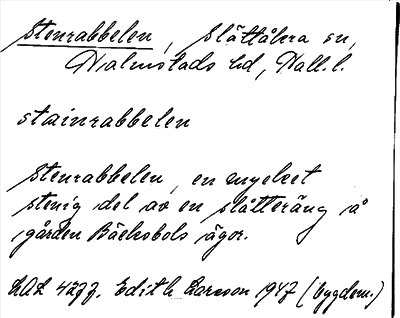 Stenrabbelen, Slättåkra sn,
Halmstads hd, Hall. l.
stainrabbelen
Stenrabbelen, en mycket
stenig del av en slåtteräng å
gården Bäcksbols ägor.
LAL 4277. Edith Larsson 1947 (bygdem.)